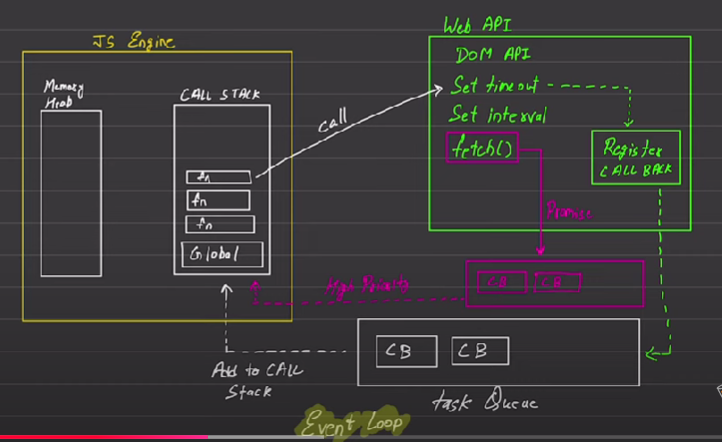 JS Engine
Memory
CALL STACK
fn
fn
fn
Global
call
Web API
DOM API
Set timeout
Set interval
fetch()
Register
CALL BACK
Promise
CB
CB
High Priority
CB
CB
Add to CALL
Stack
task Queue
Event Loop